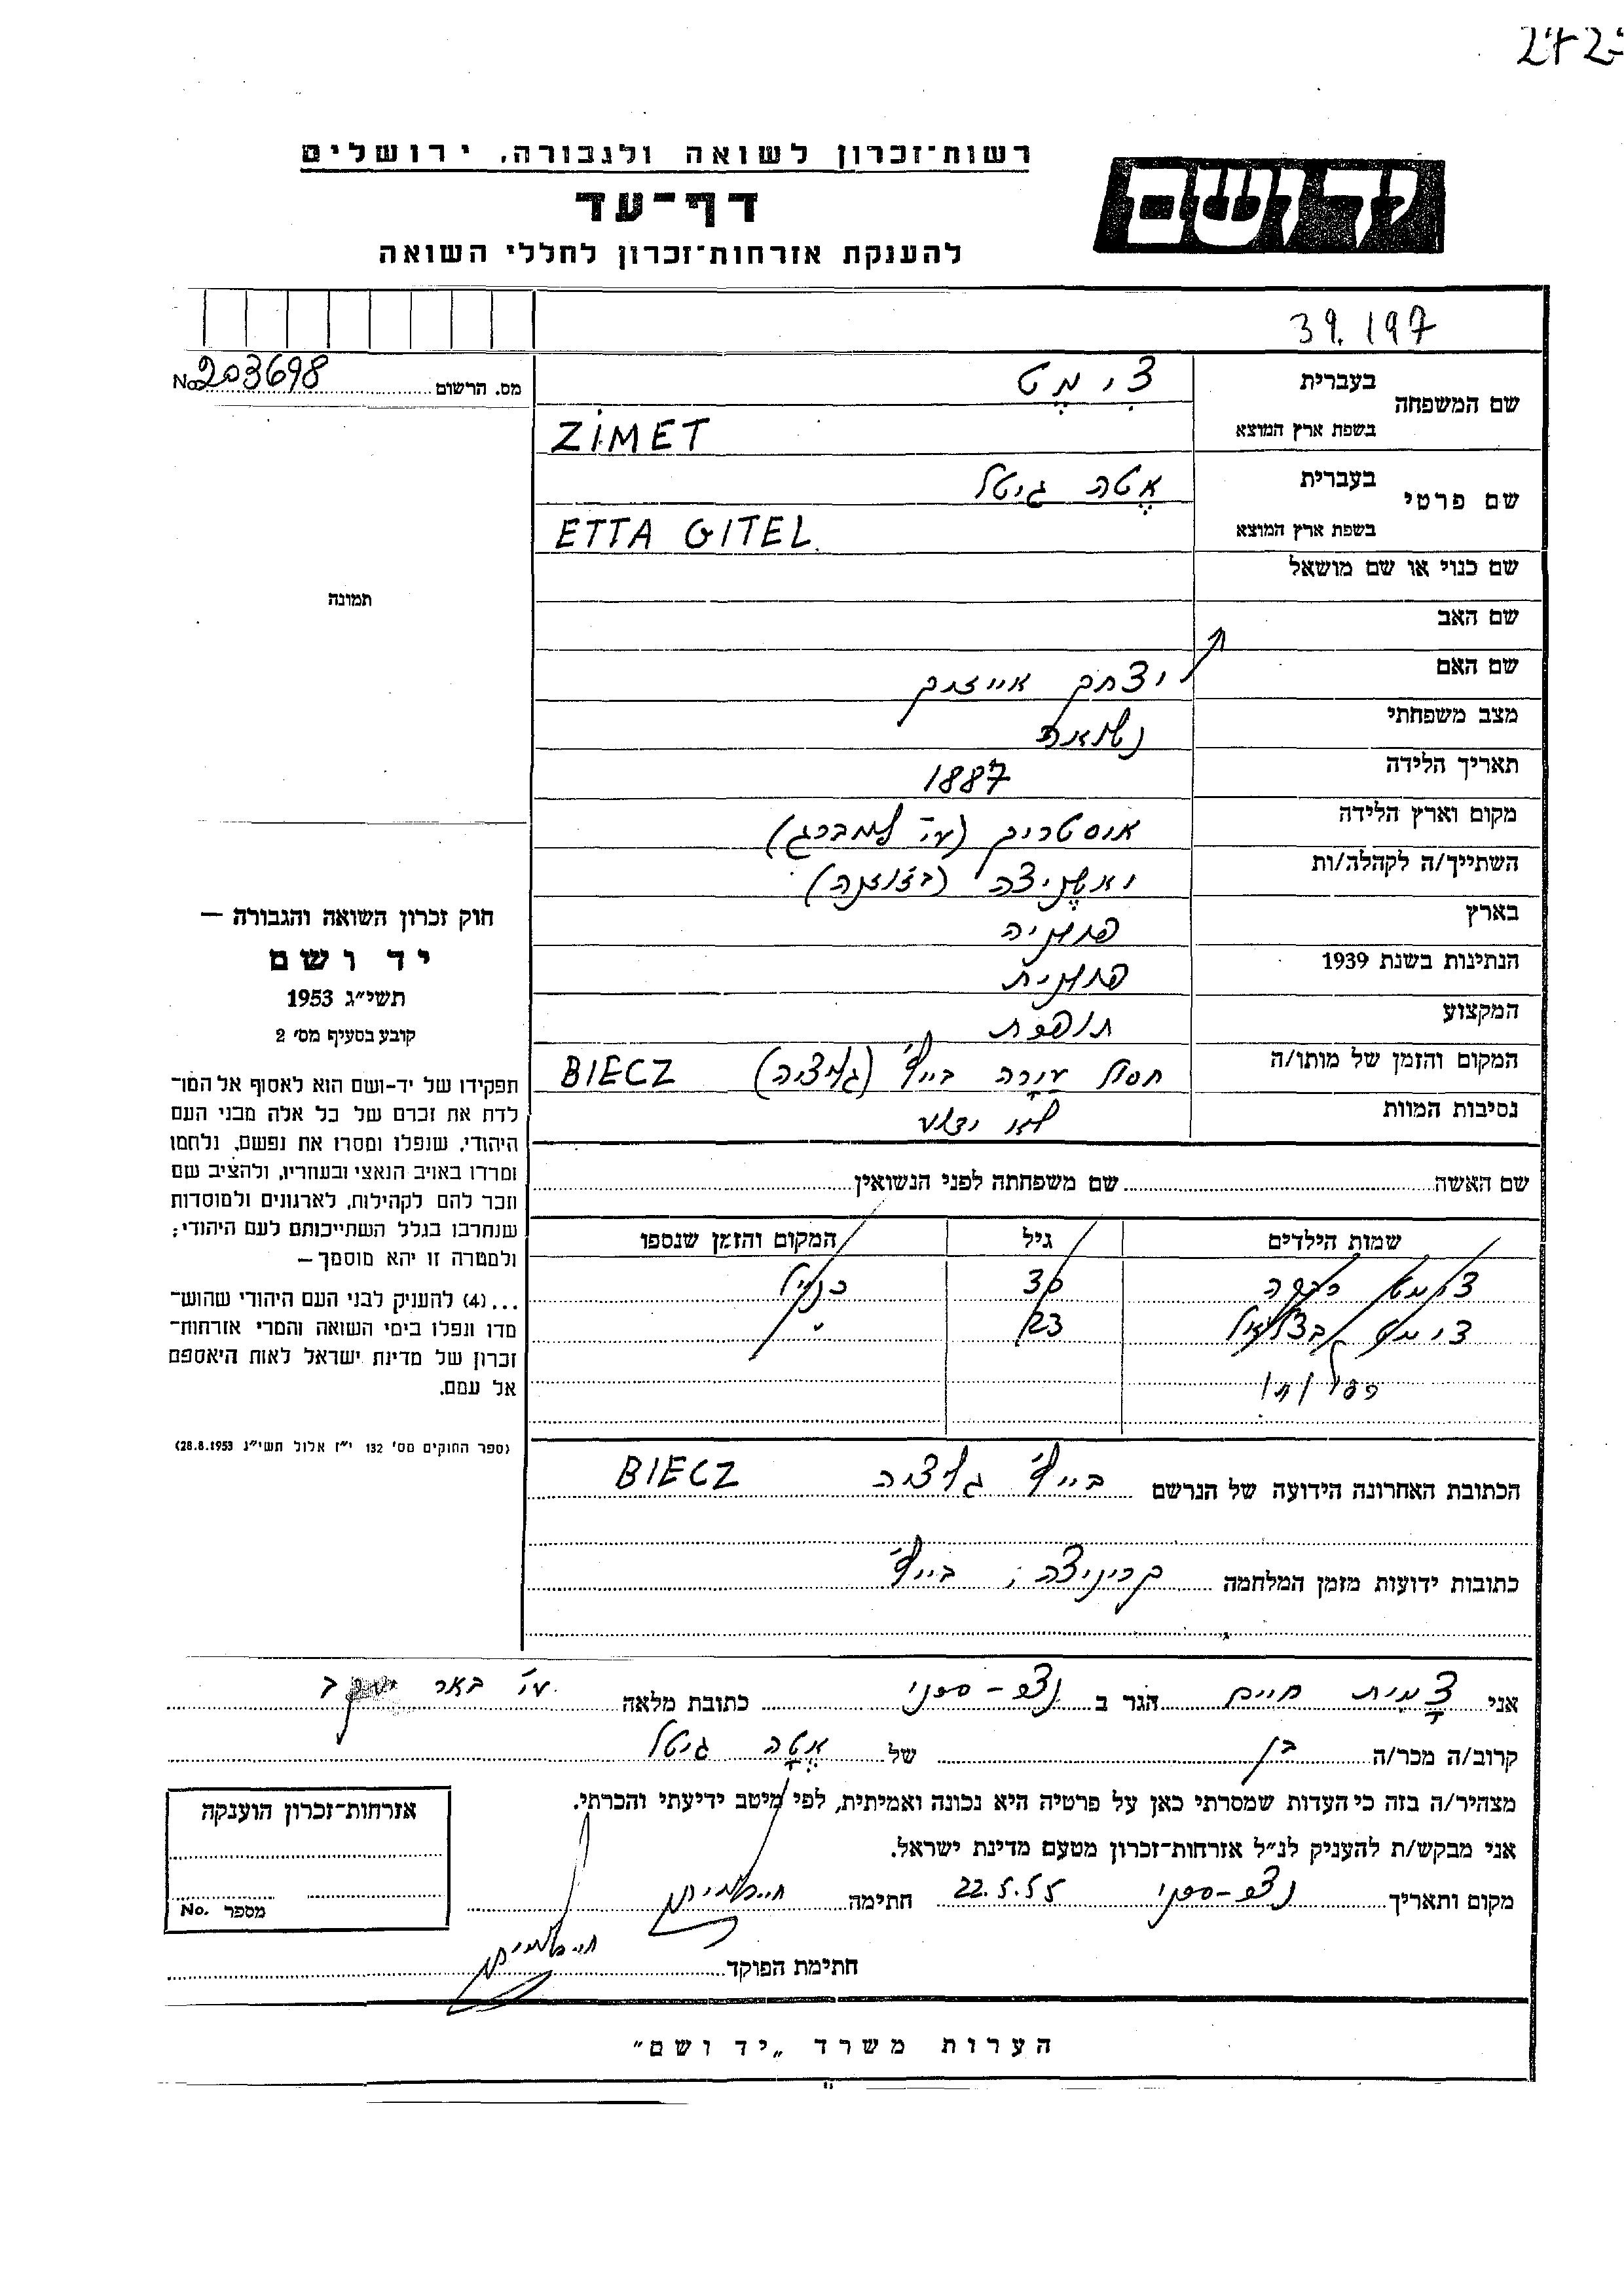 רשות־זכרון לשואה ולגבורה, ירושלים
יד ושם
דף־עד
להענקת אזרחות־זכרון לחללי השואה
39.197
מס. הרשום No 203698
שם המשפחה
בעברית צִימֶט
בשפת ארץ המוצא ZIMET
שם פרטי
בעברית אֶטה גיטל
בשפת ארץ המוצא ETTA GITEL
שם כנוי או שם מושאל
שם האב
שם האם יצחק אייזיק
מצב משפחתי נשואה
תאריך הלידה 1887
מקום וארץ הלידה אוסטריק (ע"י למברג)
השתייך/ה לקהלה/ות
בארץ רומניה
הנתינות בשנת 1939 רומנית
המקצוע תופרת
המקום והזמן של מותו/ה חסול עיירה בייץ' (גליציה) BIECZ
נסיבות המוות לא ידוע
שם האשה שם משפחתה לפני הנשואין
שמות הילדים גיל המקום והזמן שנספו
צימט רבקה 30 כנ"ל
צימט בצלאל 23 "
הכתובת האחרונה הידועה של הנרשם בייץ' גליציה BIECZ
כתובות ידועות מזמן המלחמה קריניצה; בייץ'
תמונה
חוק זכרון השואה והגבורה —
יד ושם
תשי״ג 1953
קובע בסעיף מס׳ 2
תפקידו של יד-ושם הוא לאסוף אל המו־
לדת את זכרם של כל אלה מבני העם
היהודי, שנפלו ומסרו את נפשם, נלחמו
ומרדו באויב הנאצי ובעוזריו, ולהציב שם
וזכר להם לקהילות, לארגונים ולמוסדות
שנחרבו בגלל השתייכותם לעם היהודי;
ולמטרה זו יהא מוסמך —
...(4) להעניק לבני העם היהודי שהוש־
מדו ונפלו בימי השואה והמרי אזרחות־
זכרון של מדינת ישראל לאות היאספם
אל עמם.
(ספר החוקים מס׳ 132 י״ז אלול תשי״ג 28.8.1953)
אני צִמית חיים הגר ב נצר-סרני כתובת מלאה ע"י באר יעקב
קרוב/ה מכר/ה בן של אֶטה גיטל
מצהיר/ה בזה כי העדות שמסרתי כאן על פרטיה היא נכונה ואמיתית, לפי מיטב ידיעתי והכרתי.
אני מבקש/ת להעניק לנ״ל אזרחות־זכרון מטעם מדינת ישראל.
מקום ותאריך נצר-סרני 22.5.55 חתימה
חתימת הפוקד
אזרחות־זכרון הוענקה
מספר No.
הערות משרד „יד ושם״